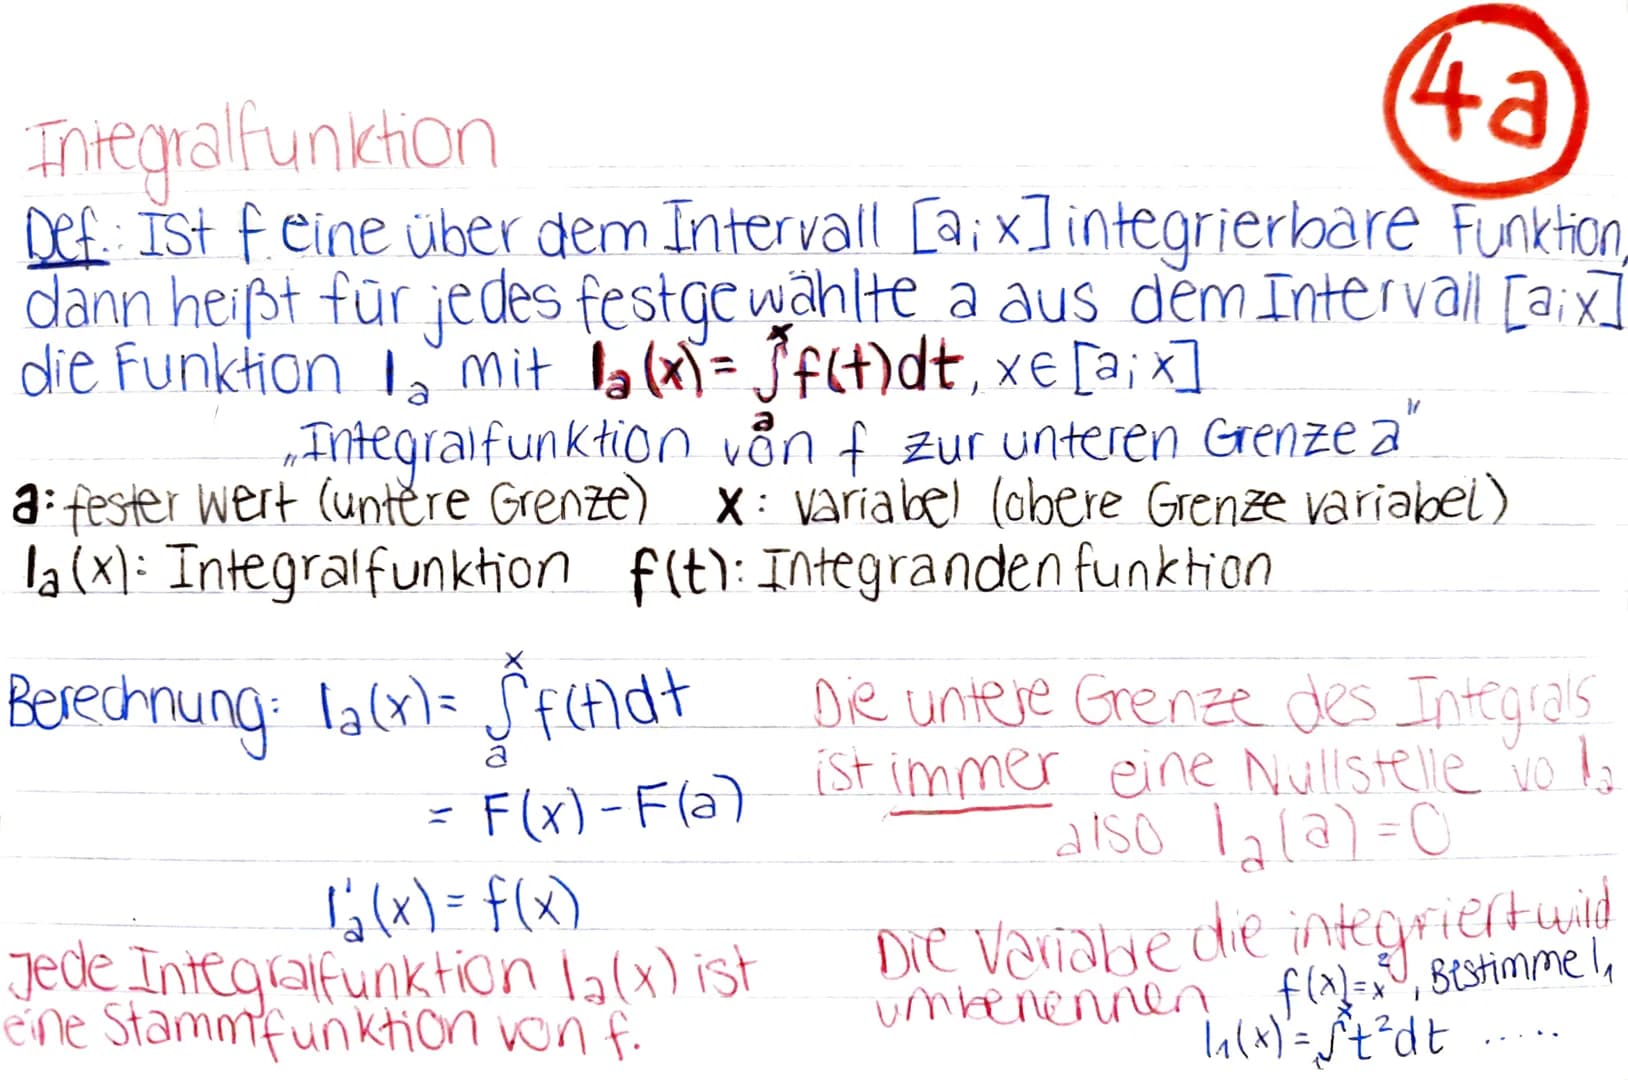 4a
Integralfunktion
Def.: Ist f eine über dem Intervall [a; x] integrierbare Funktion,
dann heißt für jedes festgewählte a aus dem Intervall [a; x]
die Funktion Iₐ mit Iₐ(x) = ∫ₐˣ f(t)dt, x ∈ [a; x]
„Integralfunktion von f zur unteren Grenze a"
a: fester Wert (untere Grenze) x: variabel (obere Grenze variabel)
Iₐ(x): Integralfunktion f(t): Integrandenfunktion
Berechnung: Iₐ(x) = ∫ₐˣ f(t)dt
= F(x) - F(a)
Iₐ'(x) = f(x)
Jede Integralfunktion Iₐ(x) ist
eine Stammfunktion von f.
Die untere Grenze des Integrals
ist immer eine Nullstelle vo Iₐ
also Iₐ(a) = 0
Die Variable die integriert wird
umbenennen
f(x) = x², Bestimme I₁
I₁(x) = ∫₁ˣ t² dt .....